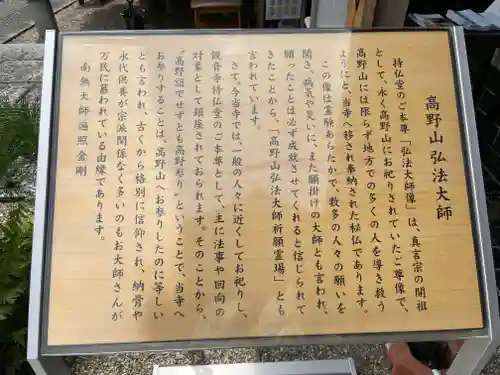 高野山弘法大師
持仏堂のご本尊「弘法大師像」は、真言宗の開祖
として、永く高野山にお祀りされていたご尊像で、
高野山には限らず地方での多くの人を導き救う
ようにと、当寺へ移され奉納された秘仏であります。
この像は霊験あらたかで、数多の人々の願いを
聞き。病気や災いに、また願掛けの大師とも言われ、
願ったことは必ず成就させてくれると信じられて
きたことから、「高野山弘法大師祈願霊場」とも
言われています。
さて、今当寺では、一般の人々に近くしてお祀りし、
観音寺持仏堂のご本尊として、主に法事や回向の
対象として鎮座されておられます。そのことから、
〝高野詣でせずとも高野参り〟ということで、当寺へ
お参りすることは、「高野山へお参りしたのに等しい
とも言われ、古くから格別に信仰され、納骨や
永代供養が宗派関係なく多いのもお大師さんが
万民に慕われている由縁であります。
南無大師遍照金剛
弘法大師